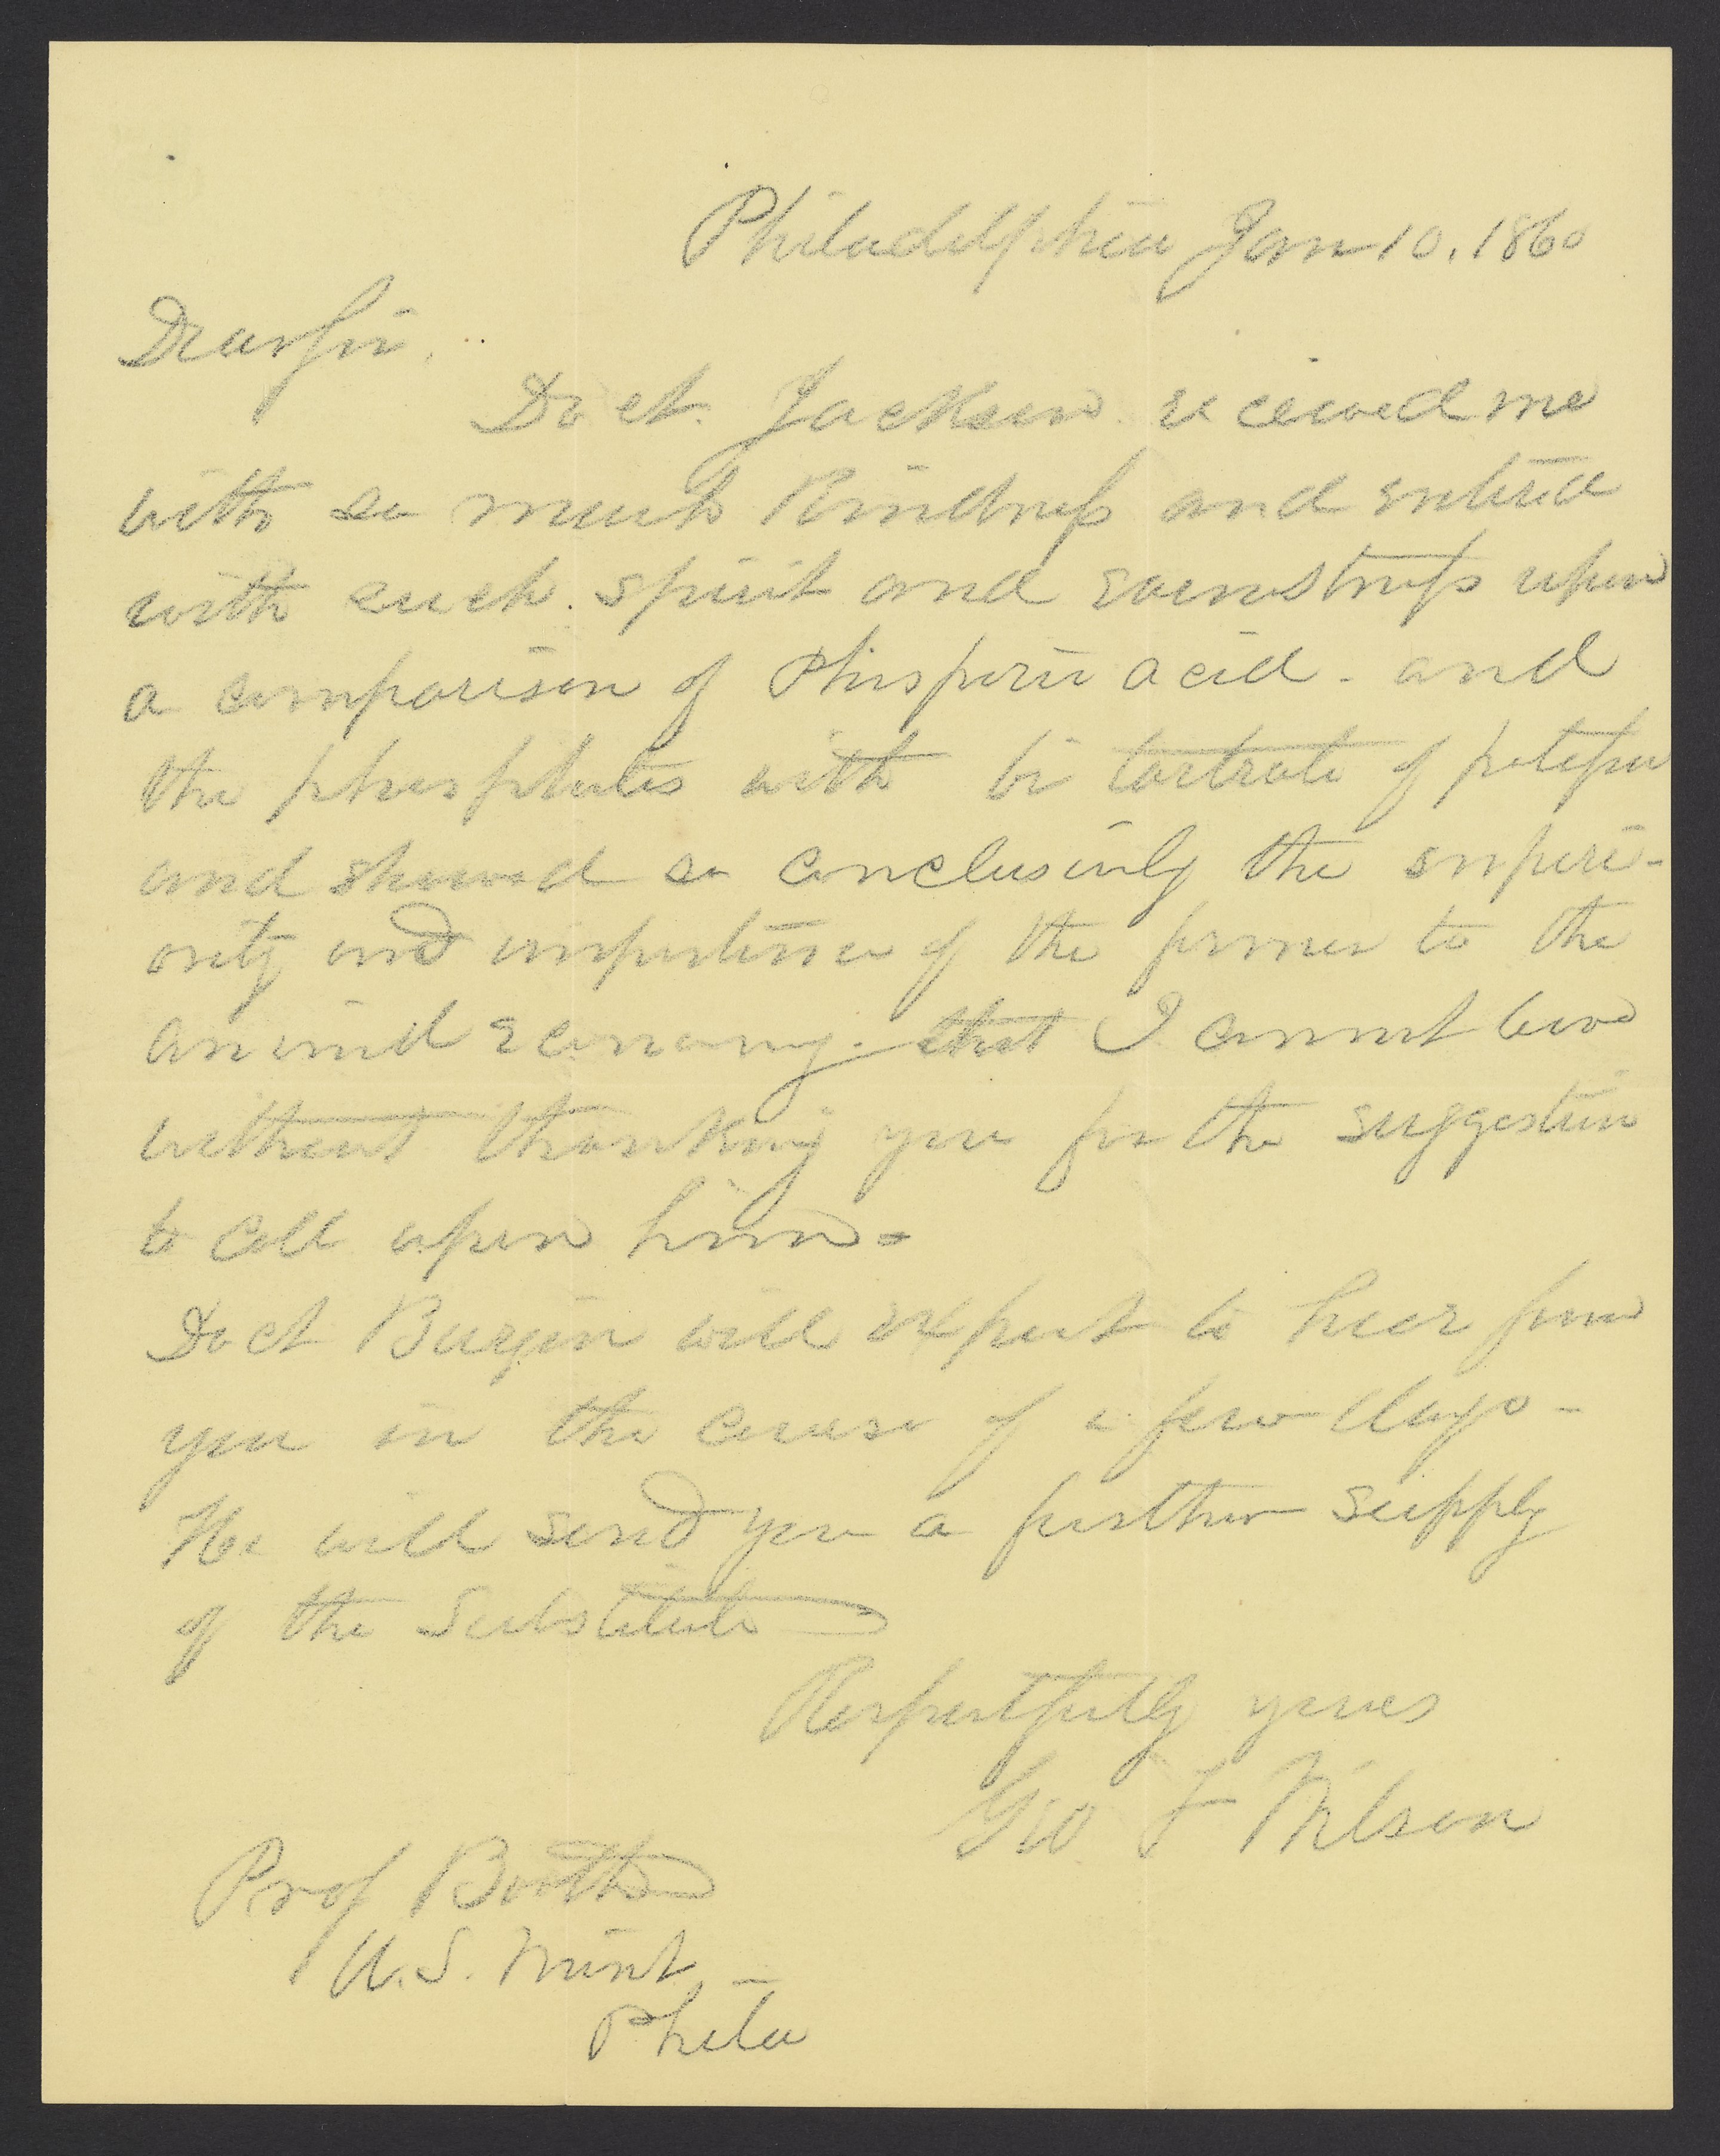 Philadelphia Jan 10, 1860
Dear Sir,
Doct. Jackson received me
with so much Kindness and entered
with such spirit and earnestness upon
a comparison of Phosporic acid - and
the phosphates with bi tartrate of potassa
and showed so conclusively the superi-
ority and importance of the former to the
animal economy - that I cannot leave
without thanking you for the suggestion
to call upon him -
Doct Burgin will expect to hear from
you in the course of a few days -
He will send you a further supply
of the Substitute
Respectfully yours
Geo. F Wilson
Prof Booth
U.S. Mint, -
Phila